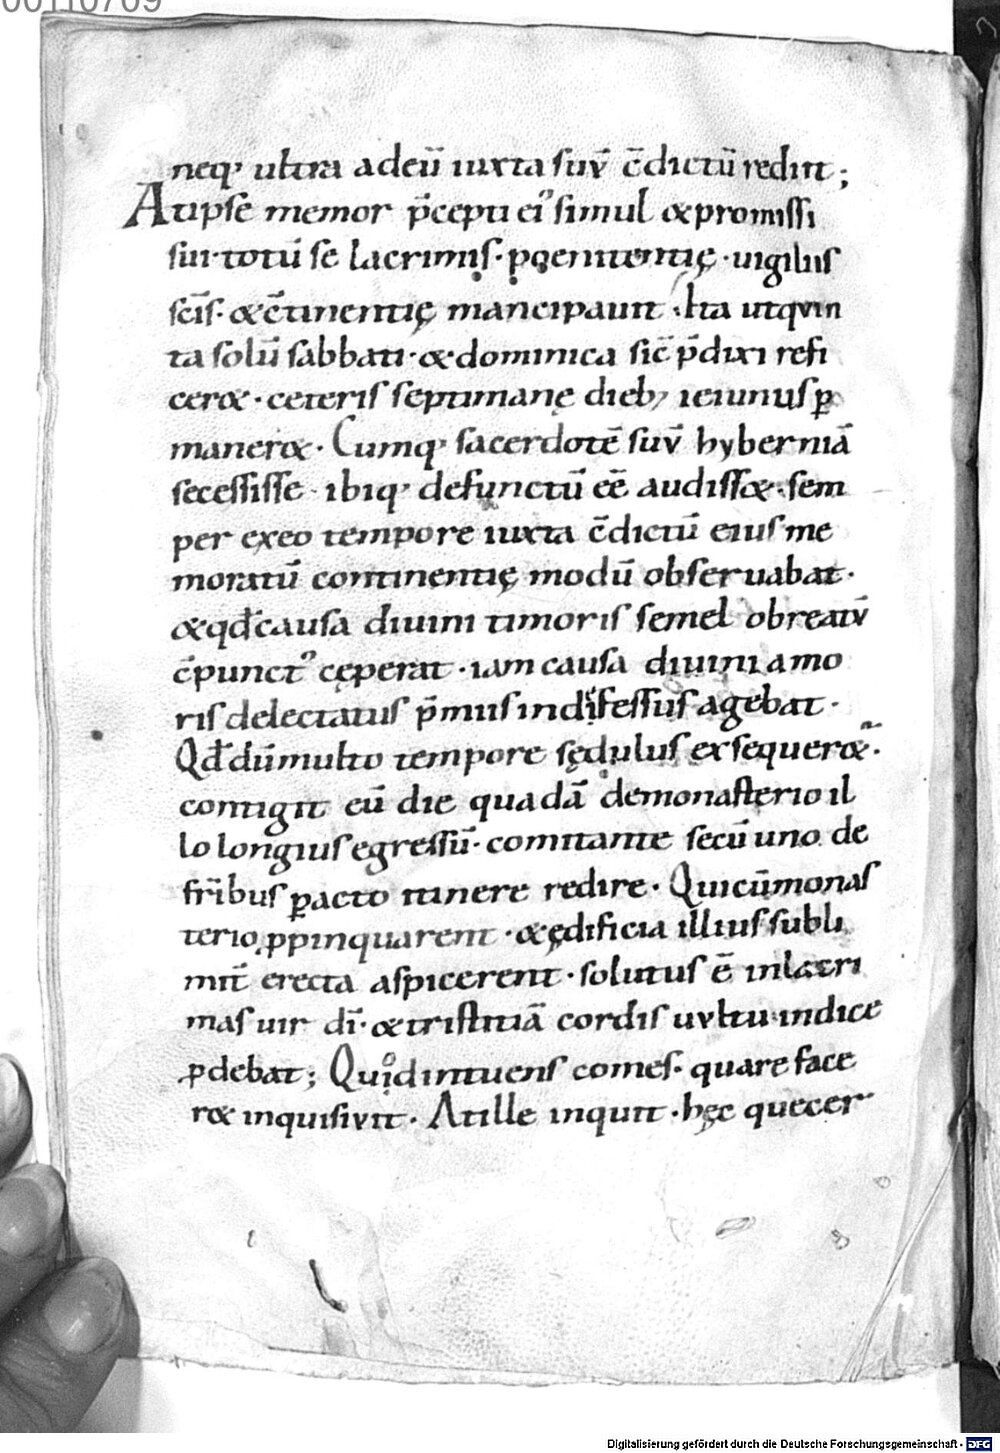 00110709
neq; ultra ad eū iuxta suū c̄dictū rediit;
At ipse memor p̄cepti ei᾽ simul & promissi
sui· totū se lacrimis· poenitentię· uigiliis
sc̄is· & c̄tinentię mancipauit· Ita ut quin
ta solū sabbati· & dominica sic̄ p̄dixi refi
ceret· ceteris septimanę dieb; ieiunus ꝑ
maneret· Cumq; sacerdotē suū hyberniā
secessisse· ibiq; defunctū eē audisset· sem
per exeo tempore iuxta c̄dictū eius me
moratū continentię modū obseruabat·
& qđ causa diuini timoris semel ob reatū
c̄punct᾽ cęperat· iam causa diuini amo
ris delectatus p̄miis indefessus agebat·
Qđ dū multo tempore sędulus exsequeret̃·
contigit eū die quadā de monasterio il
lo longius egressū· comitante secū uno de
fr̄ibus ꝑacto itinere redire· Qui cū monas
terio ꝓpinquarent· & ędificia illius subli
mit̄ erecta aspicerent· solutus ē in lacri
mas uir dī· & tristitiā cordis uultu indice
ꝓdebat; Quod intuens comes· quare face
ret inquisiuit· At ille inquit· hęc que cer
Digitalisierung gefördert durch die Deutsche Forschungsgemeinschaft - DFG